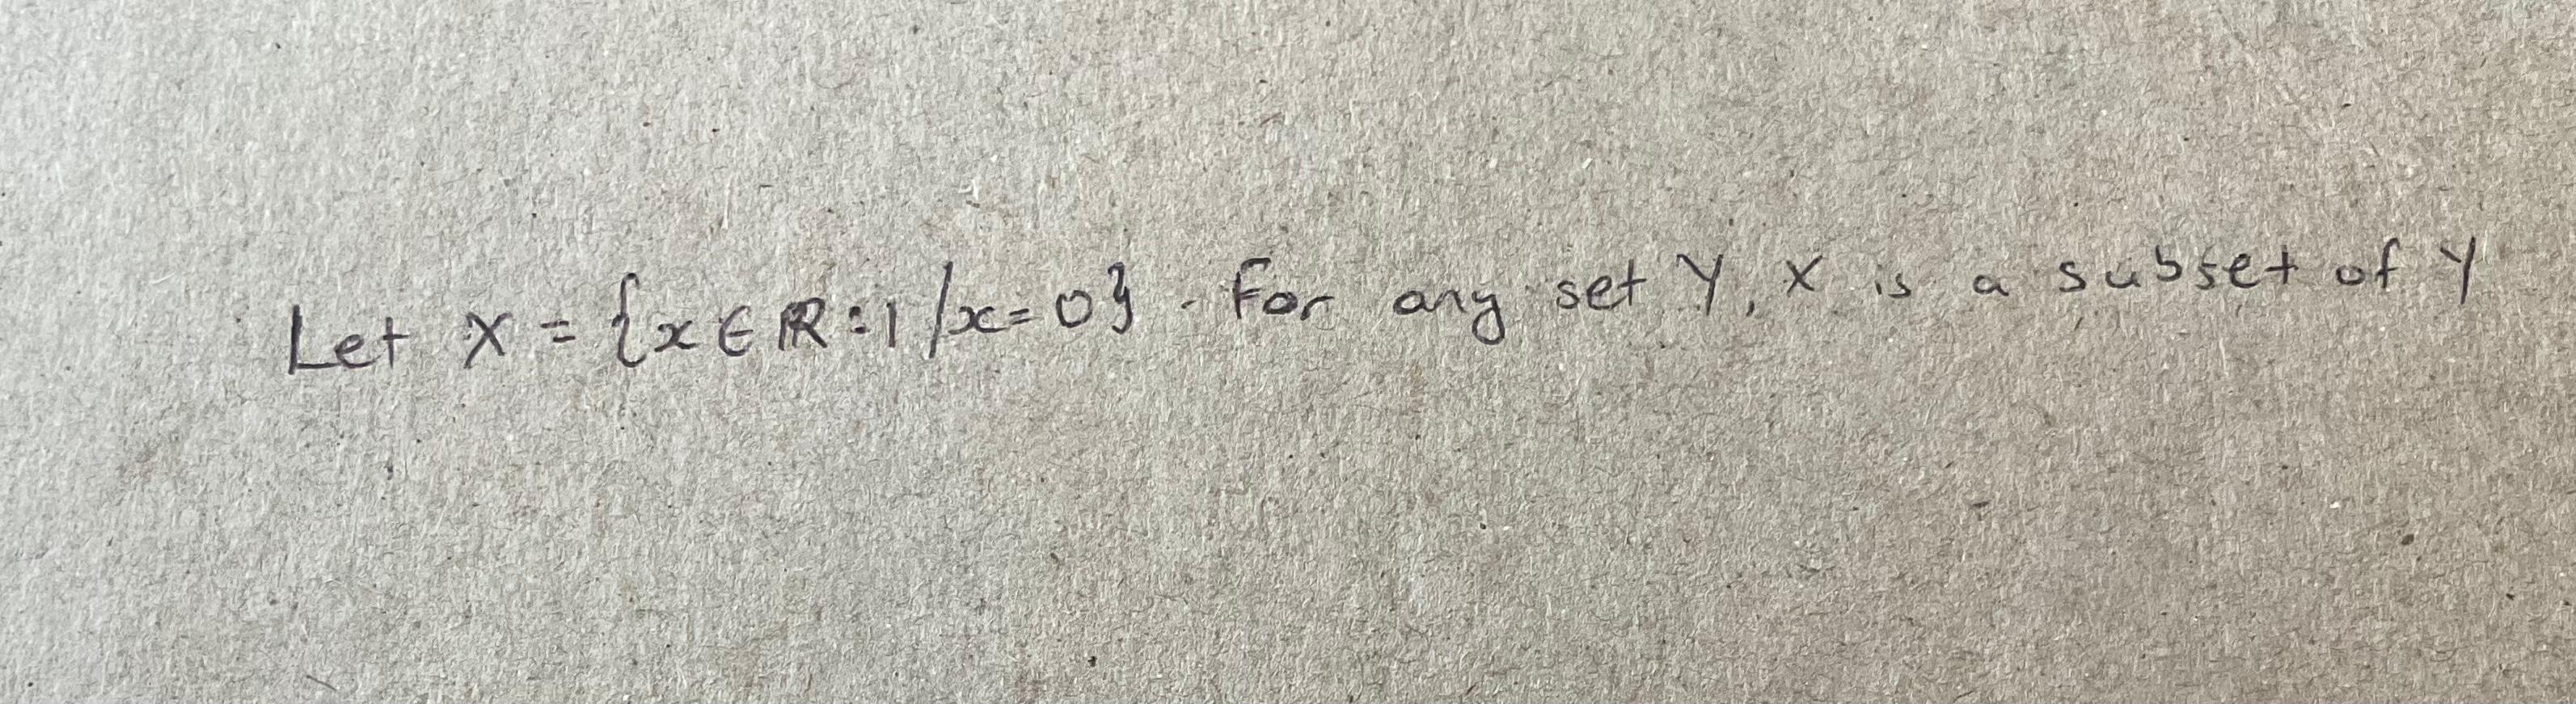 Let X = {x ∈ ℝ : 1/x = 0}. For any set Y, X is a subset of Y